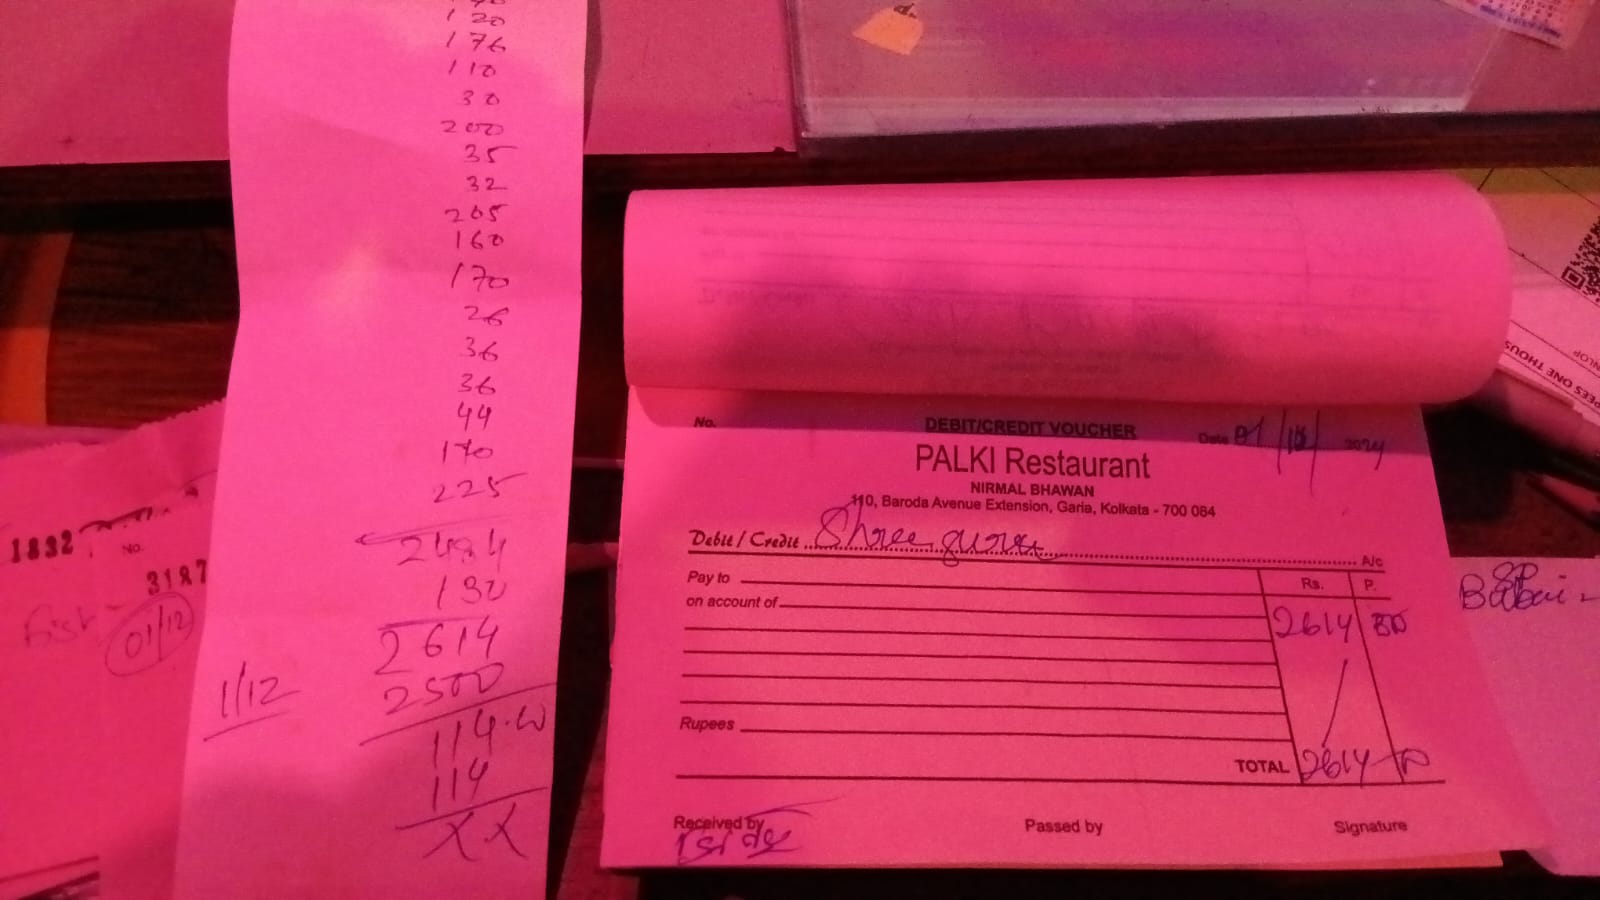 120
176
110
30
200
35
32
205
160
170
26
36
36
44
170
225
2484
130
2614
1/12
2500
114
114
X X
1832
No.
3187
01/12
No.
DEBIT/CREDIT VOUCHER
Date 01/12/2024
PALKI Restaurant
NIRMAL BHAWAN
110, Baroda Avenue Extension, Garia, Kolkata - 700 084
Debit / Credit Shree guru A/c
Pay to
Rs. P.
on account of
2614
Rupees
TOTAL 2614
Received by
Passed by
Signature